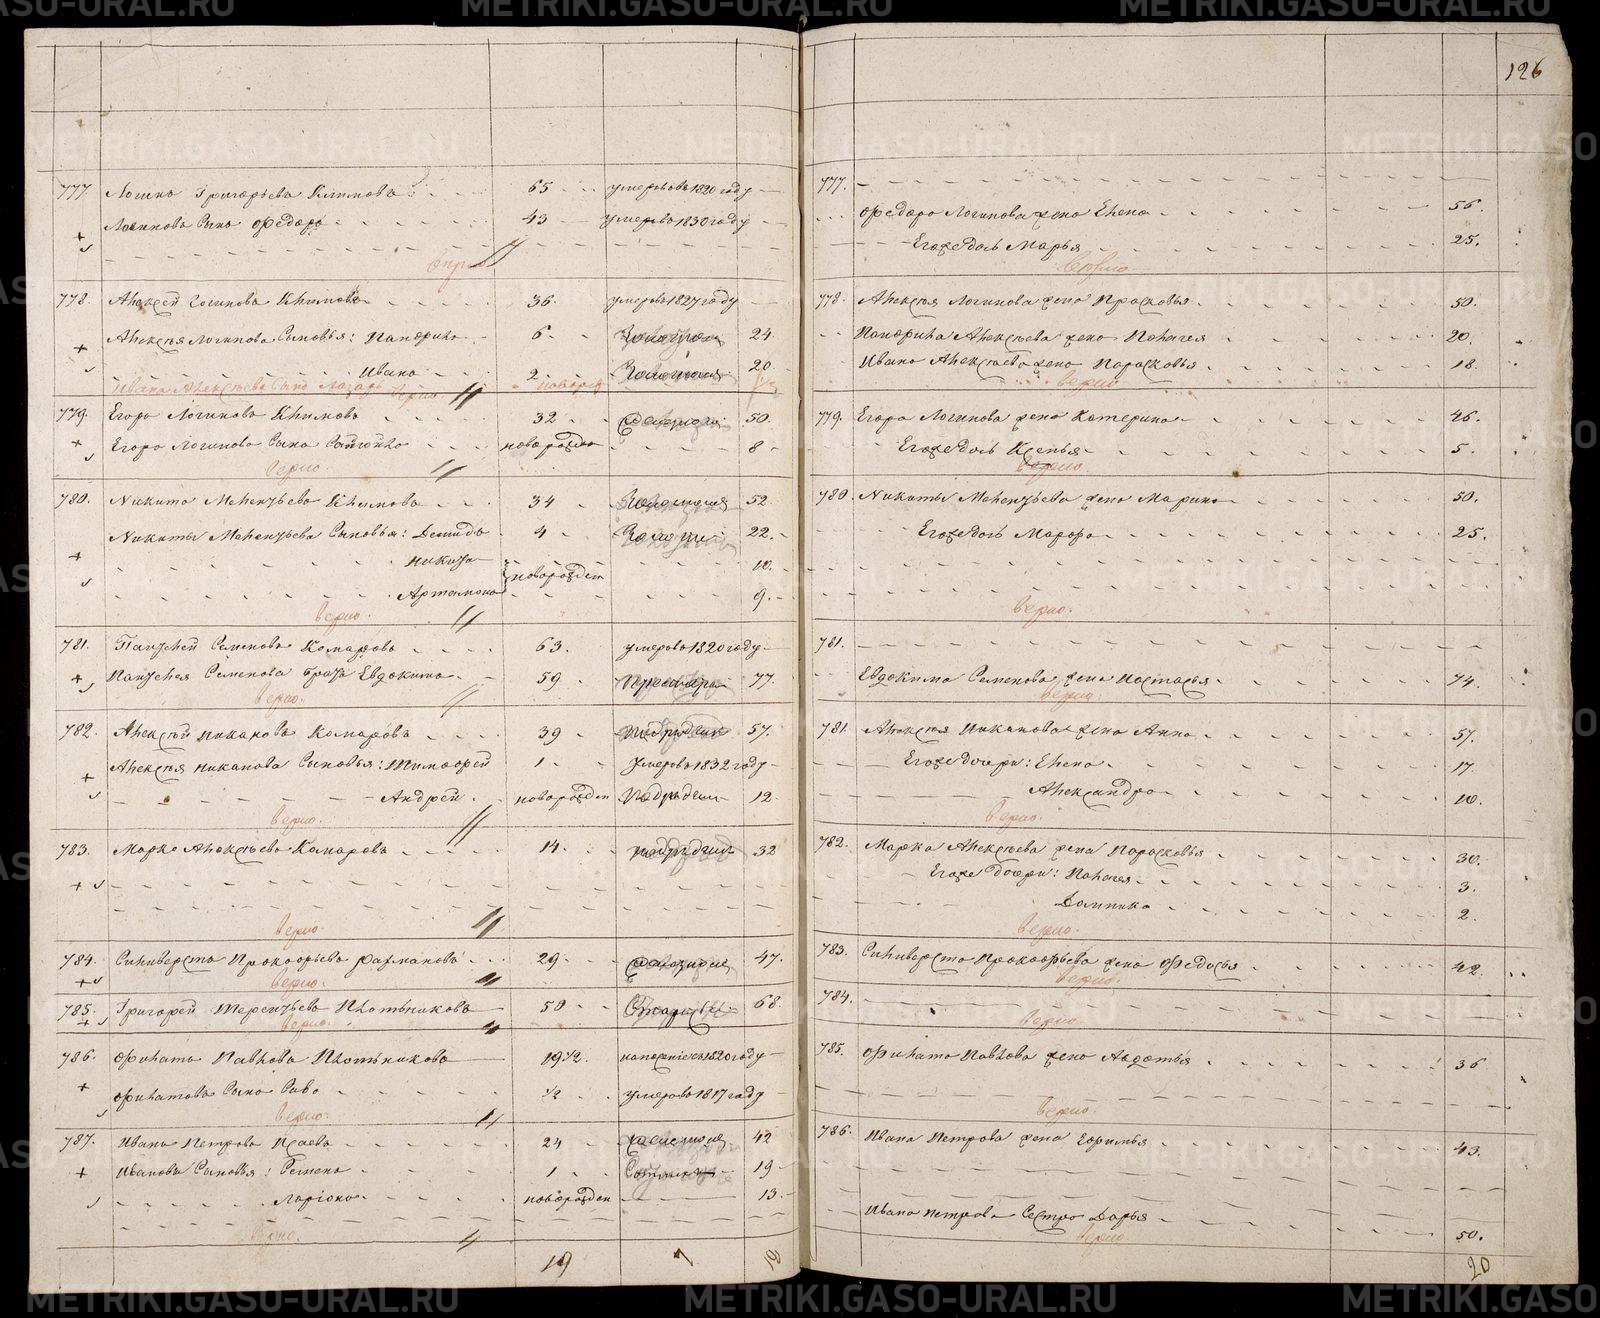 126
777. Логинъ Григорьевъ Климовъ 65 умеръ въ 1820 году
Логинова сынъ Федоръ 43 умеръ въ 1830 году
778. Алексѣй Логиновъ Климовъ 36 умеръ въ 1827 году
Алексѣя Логинова сыновья: Панфилъ 6 24
Иванъ 2 20
Ивана Алексѣева сынъ Лазарь
779. Егоръ Логиновъ Климовъ 32 50
Егора Логинова сынъ новорожден 8
вѣрно
780. Никита Меленьтьевъ Климовъ 34 52
Никиты Меленьтьева сыновья: Демидъ 4 22
Никита 10
новорожден
Артамонъ 9
вѣрно.
781. Пантелей Семеновъ Комаровъ 63. умеръ въ 1820 году
Пантелея Семенова братъ Евдокимъ 59 77
вѣрно.
782. Алексѣй Никановъ Комаровъ 39 57.
Алексѣя Никанова сыновья: Тимофей 1 умеръ въ 1832 году
Андрей новорожден 12
вѣрно.
783. Марко Алексѣевъ Комаровъ 14. 32
вѣрно.
784. Силиверстъ Прокофьевъ Рахмановъ 29 47.
вѣрно.
785. Григорей Терентьевъ Плотниковъ 50 68.
вѣрно.
786. Филатъ Павловъ Плотниковъ 19 1/2 1820 году
Филатовъ сынъ Сава 1/2 умеръ въ 1817 году
вѣрно.
787. Иванъ Петровъ Исаевъ 24 42
Ивановы сыновья: Семенъ 1 19
Ларіонъ новорожден 13
вѣрно.
19 7 19
777.
Федора Логинова жена Елена 56.
Ея же дочь Марья 25.
вѣрно
778. Алексѣя Логинова жена Прасковья 50.
Панфила Алексѣева жена Палагея 20.
Ивана Алексѣева жена Парасковья 18.
вѣрно
779. Егора Логинова жена Катерина 46.
Его же дочь Ксенья 5.
вѣрно
780. Никиты Меленьтьева жена Марина 50.
Его же дочь Марфа 25.
вѣрно.
781.
Евдокима Семенова жена Настасья 74.
вѣрно.
781. Алексѣя Никанова жена Анна 57.
Его же дочери: Елена 17.
Александра 10.
вѣрно.
782. Марка Алексѣева жена Парасковья 30.
Его же дочери: Палагея 3.
Домника 2.
вѣрно.
783. Силиверста Прокофьева жена Федосья 42.
вѣрно.
784.
вѣрно
785. Филата Павлова жена Авдотья 36
вѣрно.
786. Ивана Петрова жена Ефимья 43.
Ивана Петрова сестра Дарья 50.
вѣрно
20
METRIKI.GASO-URAL.RU